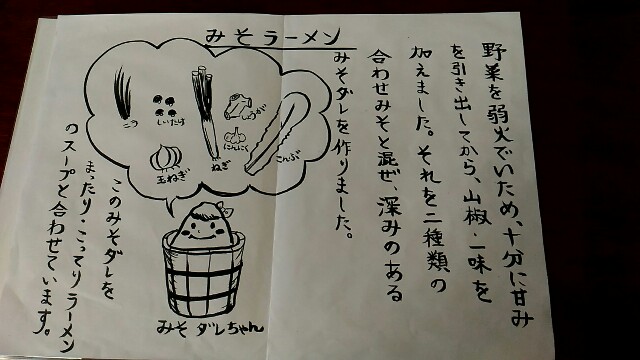 みそラーメン
野菜を弱火でいため、十分に甘み
を引き出してから、山椒、一味を
加えました。それを二種類の
合わせみそと混ぜ、深みのある
みそダレを作りました。
しいたけ
ねぎ
にんにく
こんぶ
玉ねぎ
このみそダレを
まったり・こってりラーメン
のスープと合わせています。
みそダレちゃん